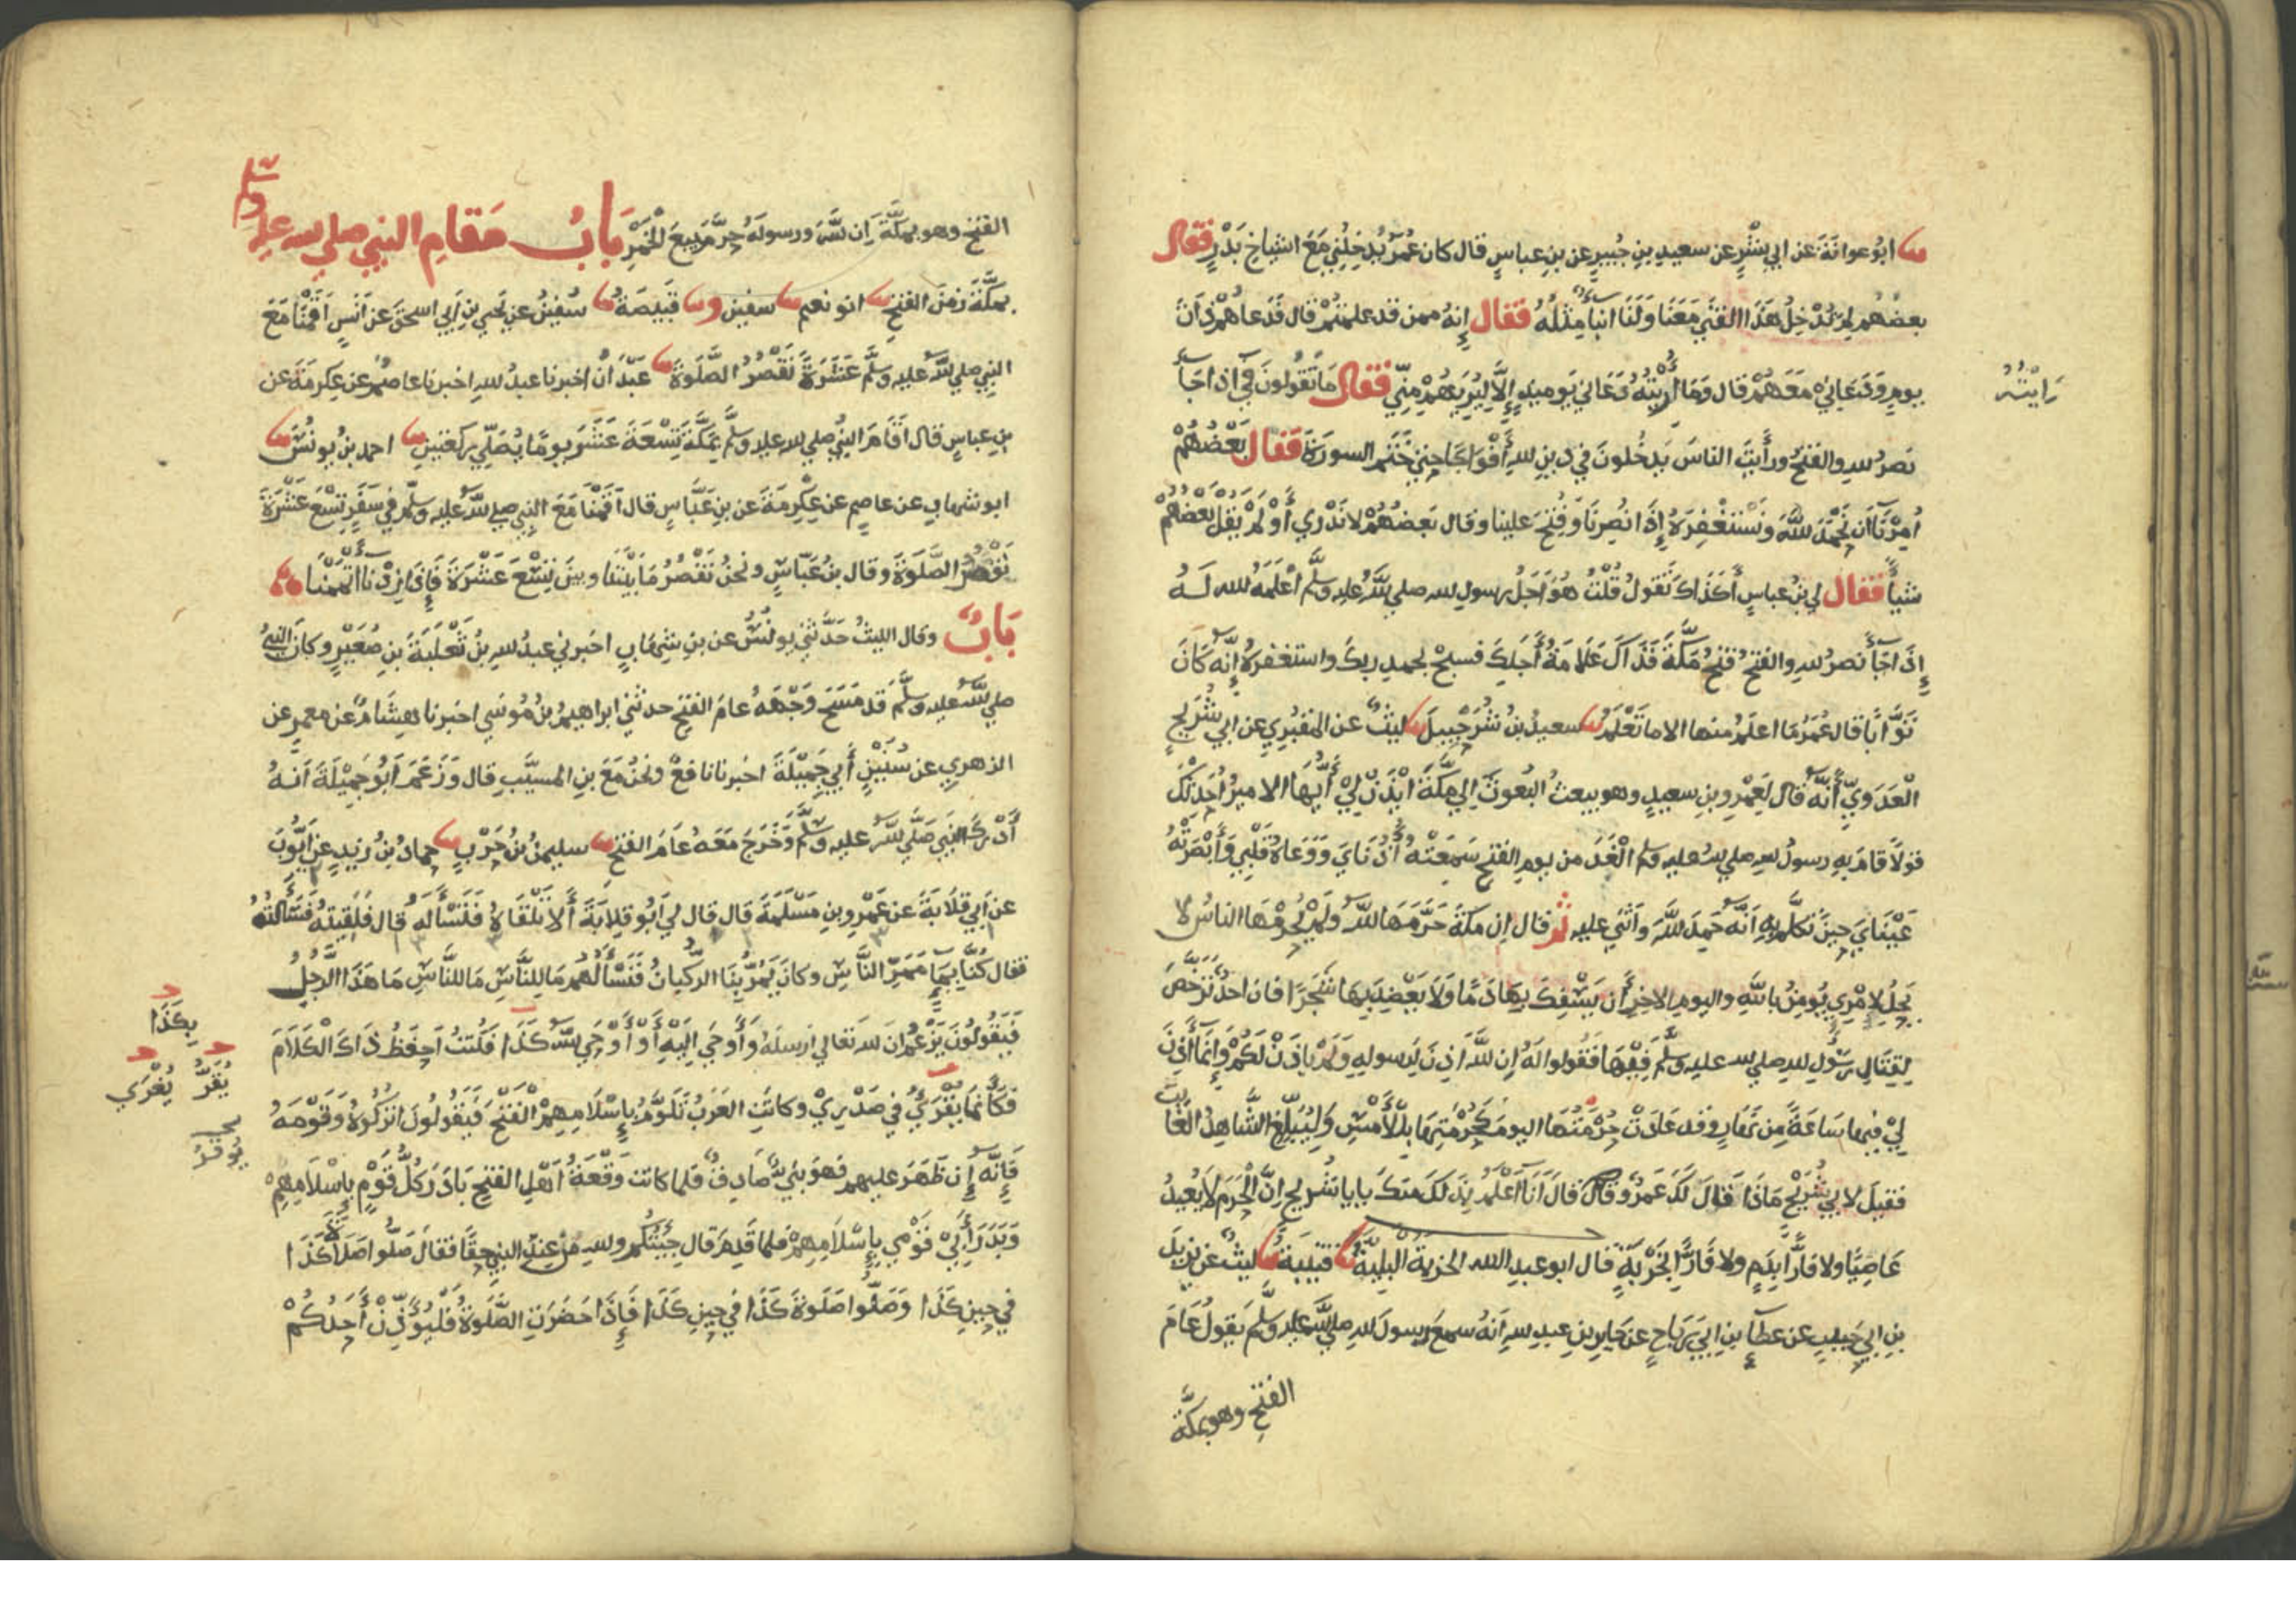 ابو عوانة عن ابي بشر عن سعيد بن جبير عن بن عباس قال كان عمر يدخلني مع اشياخ بدر فقال
بعضهم لم تدخل هذا الفتى معنا ولنا ابناء مثله فقال إنه ممن قد علمتم قال فدعاهم ذات
يوم ودعاني معهم قال وما أريته دعاني يوميذ إلا ليريهم مني فقال ما تقولون في اذا جاء
رايته
نصر الله والفتح ورأيت الناس يدخلون في دين الله أفواجا حتي ختم السورة فقال بعضهم
أمرنا أن نحمد الله ونستغفره إذا نصرنا وفتح علينا وقال بعضهم لا ندري أو لم يقل بعضهم
شيأ فقال لي بن عباس أكذاك تقول قلت هو اجل رسول الله صلي الله عليه وسلم أعلمه الله له
إذا جاء نصر الله والفتح فتح مكة فذاك علامة أجلك فسبح بحمد ربك واستغفره إنه كان
توابا قال عمر ما اعلم منها الا ما تعلم سعيد بن شرحبيل ليث عن المقبري عن ابي شريح
العدوي أنه قال لعمرو بن سعيد وهو يبعث البعوث الي مكة ائذن لي أيها الامير أحدثك
قولا قام به رسول الله صلي الله عليه وسلم الغد من يوم الفتح سمعته أذناي ووعاه قلبي وأبصرته
عيناي حين تكلم به أنه حمد الله وأثني عليه ثم قال ان مكة حرمها الله ولم يحرمها الناس لا
يحل لامري يومن بالله واليوم الاخر أن يسفك بها دما ولا يعضد بها شجرا فان احد ترخص
لقتال رسول الله صلي الله عليه وسلم فيها فقولوا له إن الله اذن لرسوله ولم ياذن لكم وإنما أذن
لي فيها ساعة من نهار وقد عادت حرمتها اليوم كحرمتها بالأمس وليبلغ الشاهد الغايب
فقيل لابي شريح ماذا قال لك عمرو قال قال أنا أعلم بذلك منك يا با شريح ان الحرم لا يعيذ
عاصيا ولا فارا بدم ولا فارا بخربة قال ابو عبد الله الخربة البلية قتيبة ليث عن يزيد
بن ابي حبيب عن عطاء بن ابي رباح عن جابر بن عبد الله أنه سمع رسول الله صلي الله عليه وسلم يقول عام
الفتح وهو بمكة
الفتح وهو بمكة إن الله ورسوله حرم بيع الخمر باب مقام النبي صلي الله عليه وسلم
بمكة زمن الفتح ابو نعيم سفين وقبيصة سفين عن يحيي بن أبي اسحق عن أنس أقمنا مع
النبي صلي الله عليه وسلم عشرة نقصر الصلوة عبدان اخبرنا عبد الله اخبرنا عاصم عن عكرمة عن
بن عباس قال أقام النبي صلي الله عليه وسلم بمكة تسعة عشر يوما يصلي ركعتين احمد بن يونس
ابو شهاب عن عاصم عن عكرمة عن بن عباس قال أقمنا مع النبي صلي الله عليه وسلم في سفر تسع عشرة
نقصر الصلوة وقال بن عباس ونحن نقصر ما بيننا وبين تسع عشرة فإذا زدنا أتممنا
باب وقال الليث حدثني يونس عن بن شهاب اخبرني عبد الله بن ثعلبة بن صعير وكان النبي
صلي الله عليه وسلم قد مسح وجهه عام الفتح حدثني ابراهيم بن موسي اخبرنا هشام عن معمر عن
الزهري عن سنين أبي جميلة اخبرنا نافع ونحن مع بن المسيب قال وزعم أبو جميلة أنه
أدرك النبي صلي الله عليه وسلم وخرج معه عام الفتح سليمن بن حرب حماد بن زيد عن أيوب
عن أبي قلابة عن عمرو بن مسلمة قال قال لي أبو قلابة ألا تلقاه فتسأله قال فلقيته فسألته
فقال كنا بما ممر الناس وكان يمر بنا الركبان فنسألهم ما للناس ما للناس ما هذا الرجل
فيقولون يزعم ان الله تعالي ارسله وأوحي اليه أو أوحي الله كذا فكنت احفظ ذاك الكلام
بكذا
فكأنما يقري في صدري وكانت العرب تلوم بإسلامهم الفتح فيقولون اتركوه وقومه
يقر يغري
فإنه إن ظهر عليهم فهو نبي صادق فلما كانت وقعة أهل الفتح بادر كل قوم بإسلامهم
وبدر أبي قومي بإسلامهم فلما قدم قال جيتكم والله من عند النبي حقا فقال صلوا صلاة كذا
في حين كذا وصلوا صلوة كذا في حين كذا فإذا حضرت الصلوة فليوذن أحدكم